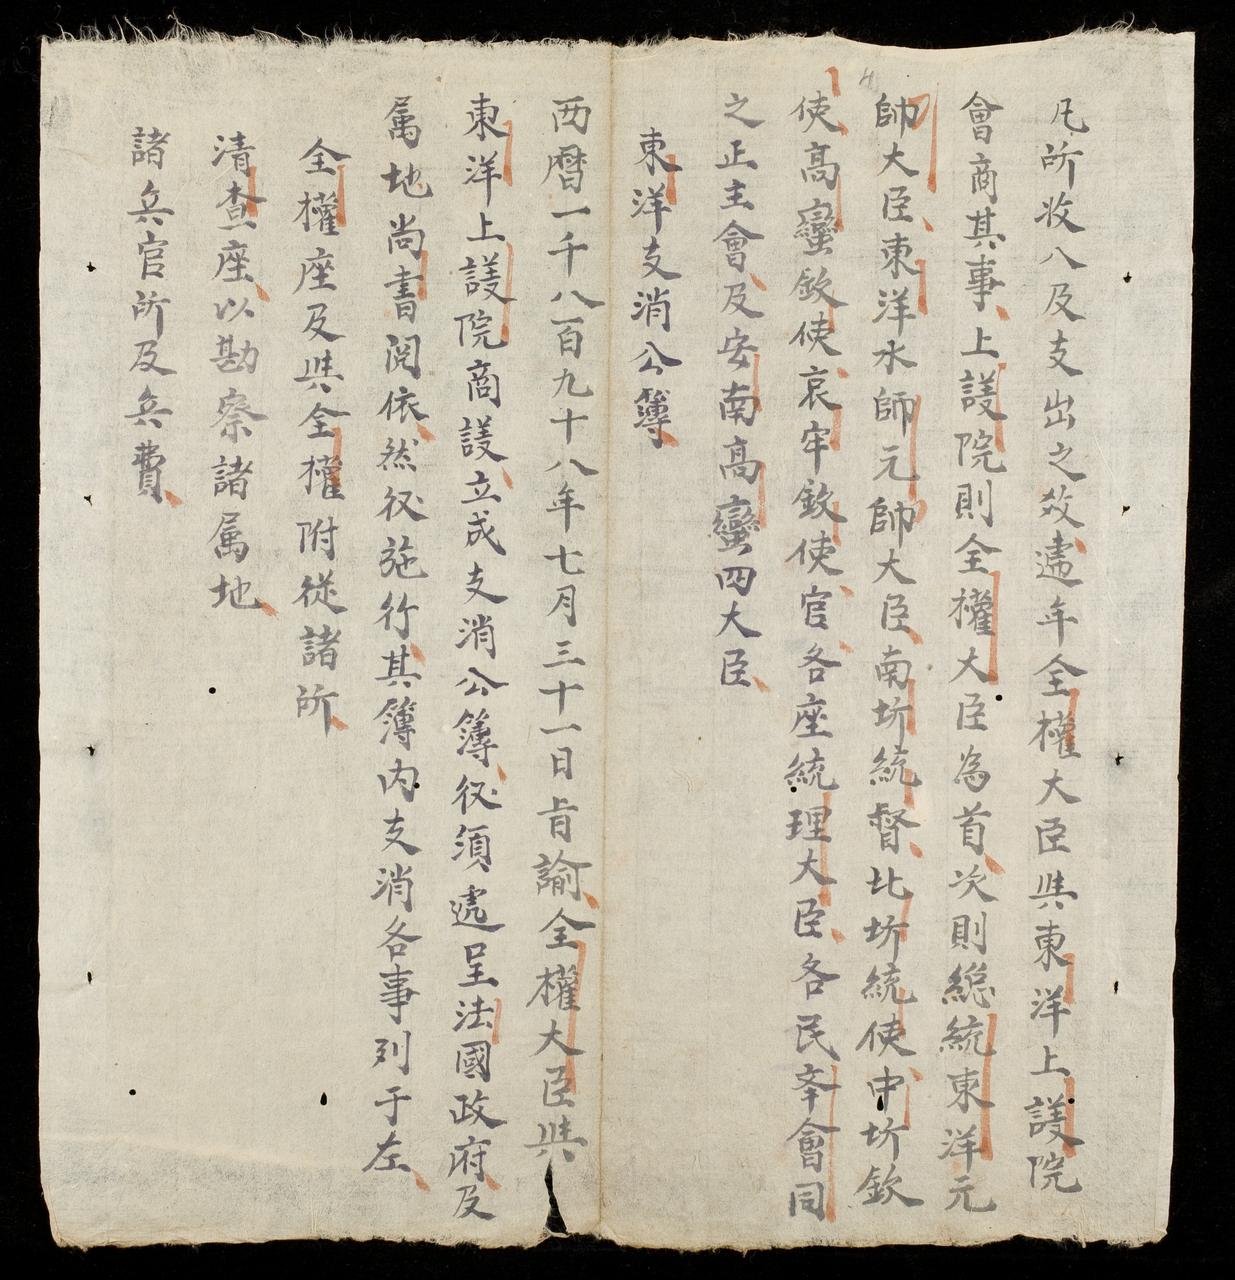 凡所收入及支出之放遞年全權大臣與東洋上議院
會商其事上議院則全權大臣為首次則總統東洋元
帥大臣東洋水師元帥大臣南圻統督北圻統使中圻欽
使高蠻欽使哀牢欽使官各座統理大臣各民辛會同
之正主會及安南高蠻四大臣
東洋支消公簿
西曆一千八百九十八年七月三十一日旨諭全權大臣與
東洋上議院商議立成支消公簿仍須遞呈法國政府及
属地尚書閱依然仍施行其簿內支消各事列于左
全權座及與全權附從諸所
清查座以勘察諸属地
諸兵官所及兵費